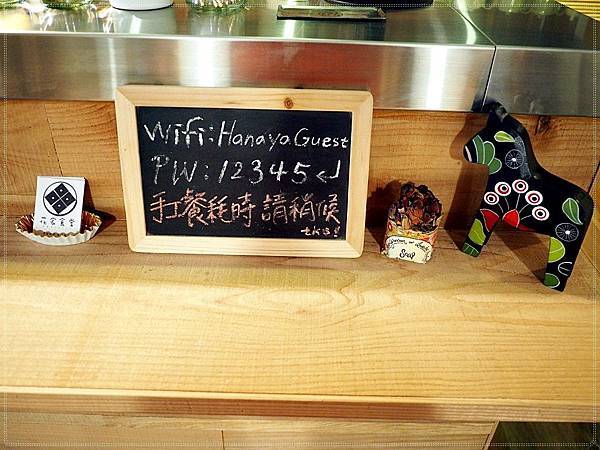 Wifi:Hanaya Guest
PW:12345↵
手工餐耗時 請稍候
tks!
花家食堂
Soap